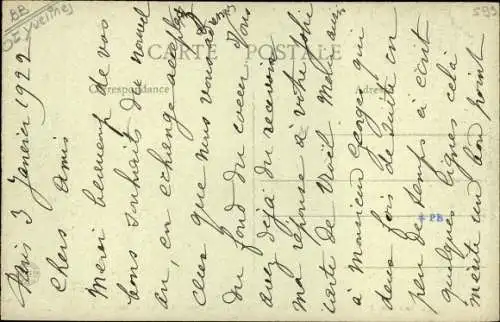 BB
57 Yvelines
599
CARTE POSTALE
Correspondance
Adresse
Paris 3 Janvier 1922
Chers amis
Merci beaucoup de vos
bons souhaits du nouvel
an, en échange acceptez
ceux que nous vous adressons
du fond du coeur. Vous
avez déjà du recevoir
ma réponse à votre jolie
carte de Noël. Mela avec
à Monsieur Georges qui
deux fois de suite en
peu de temps a écrit
quelques lignes cela
mérite un bon point
+ PB